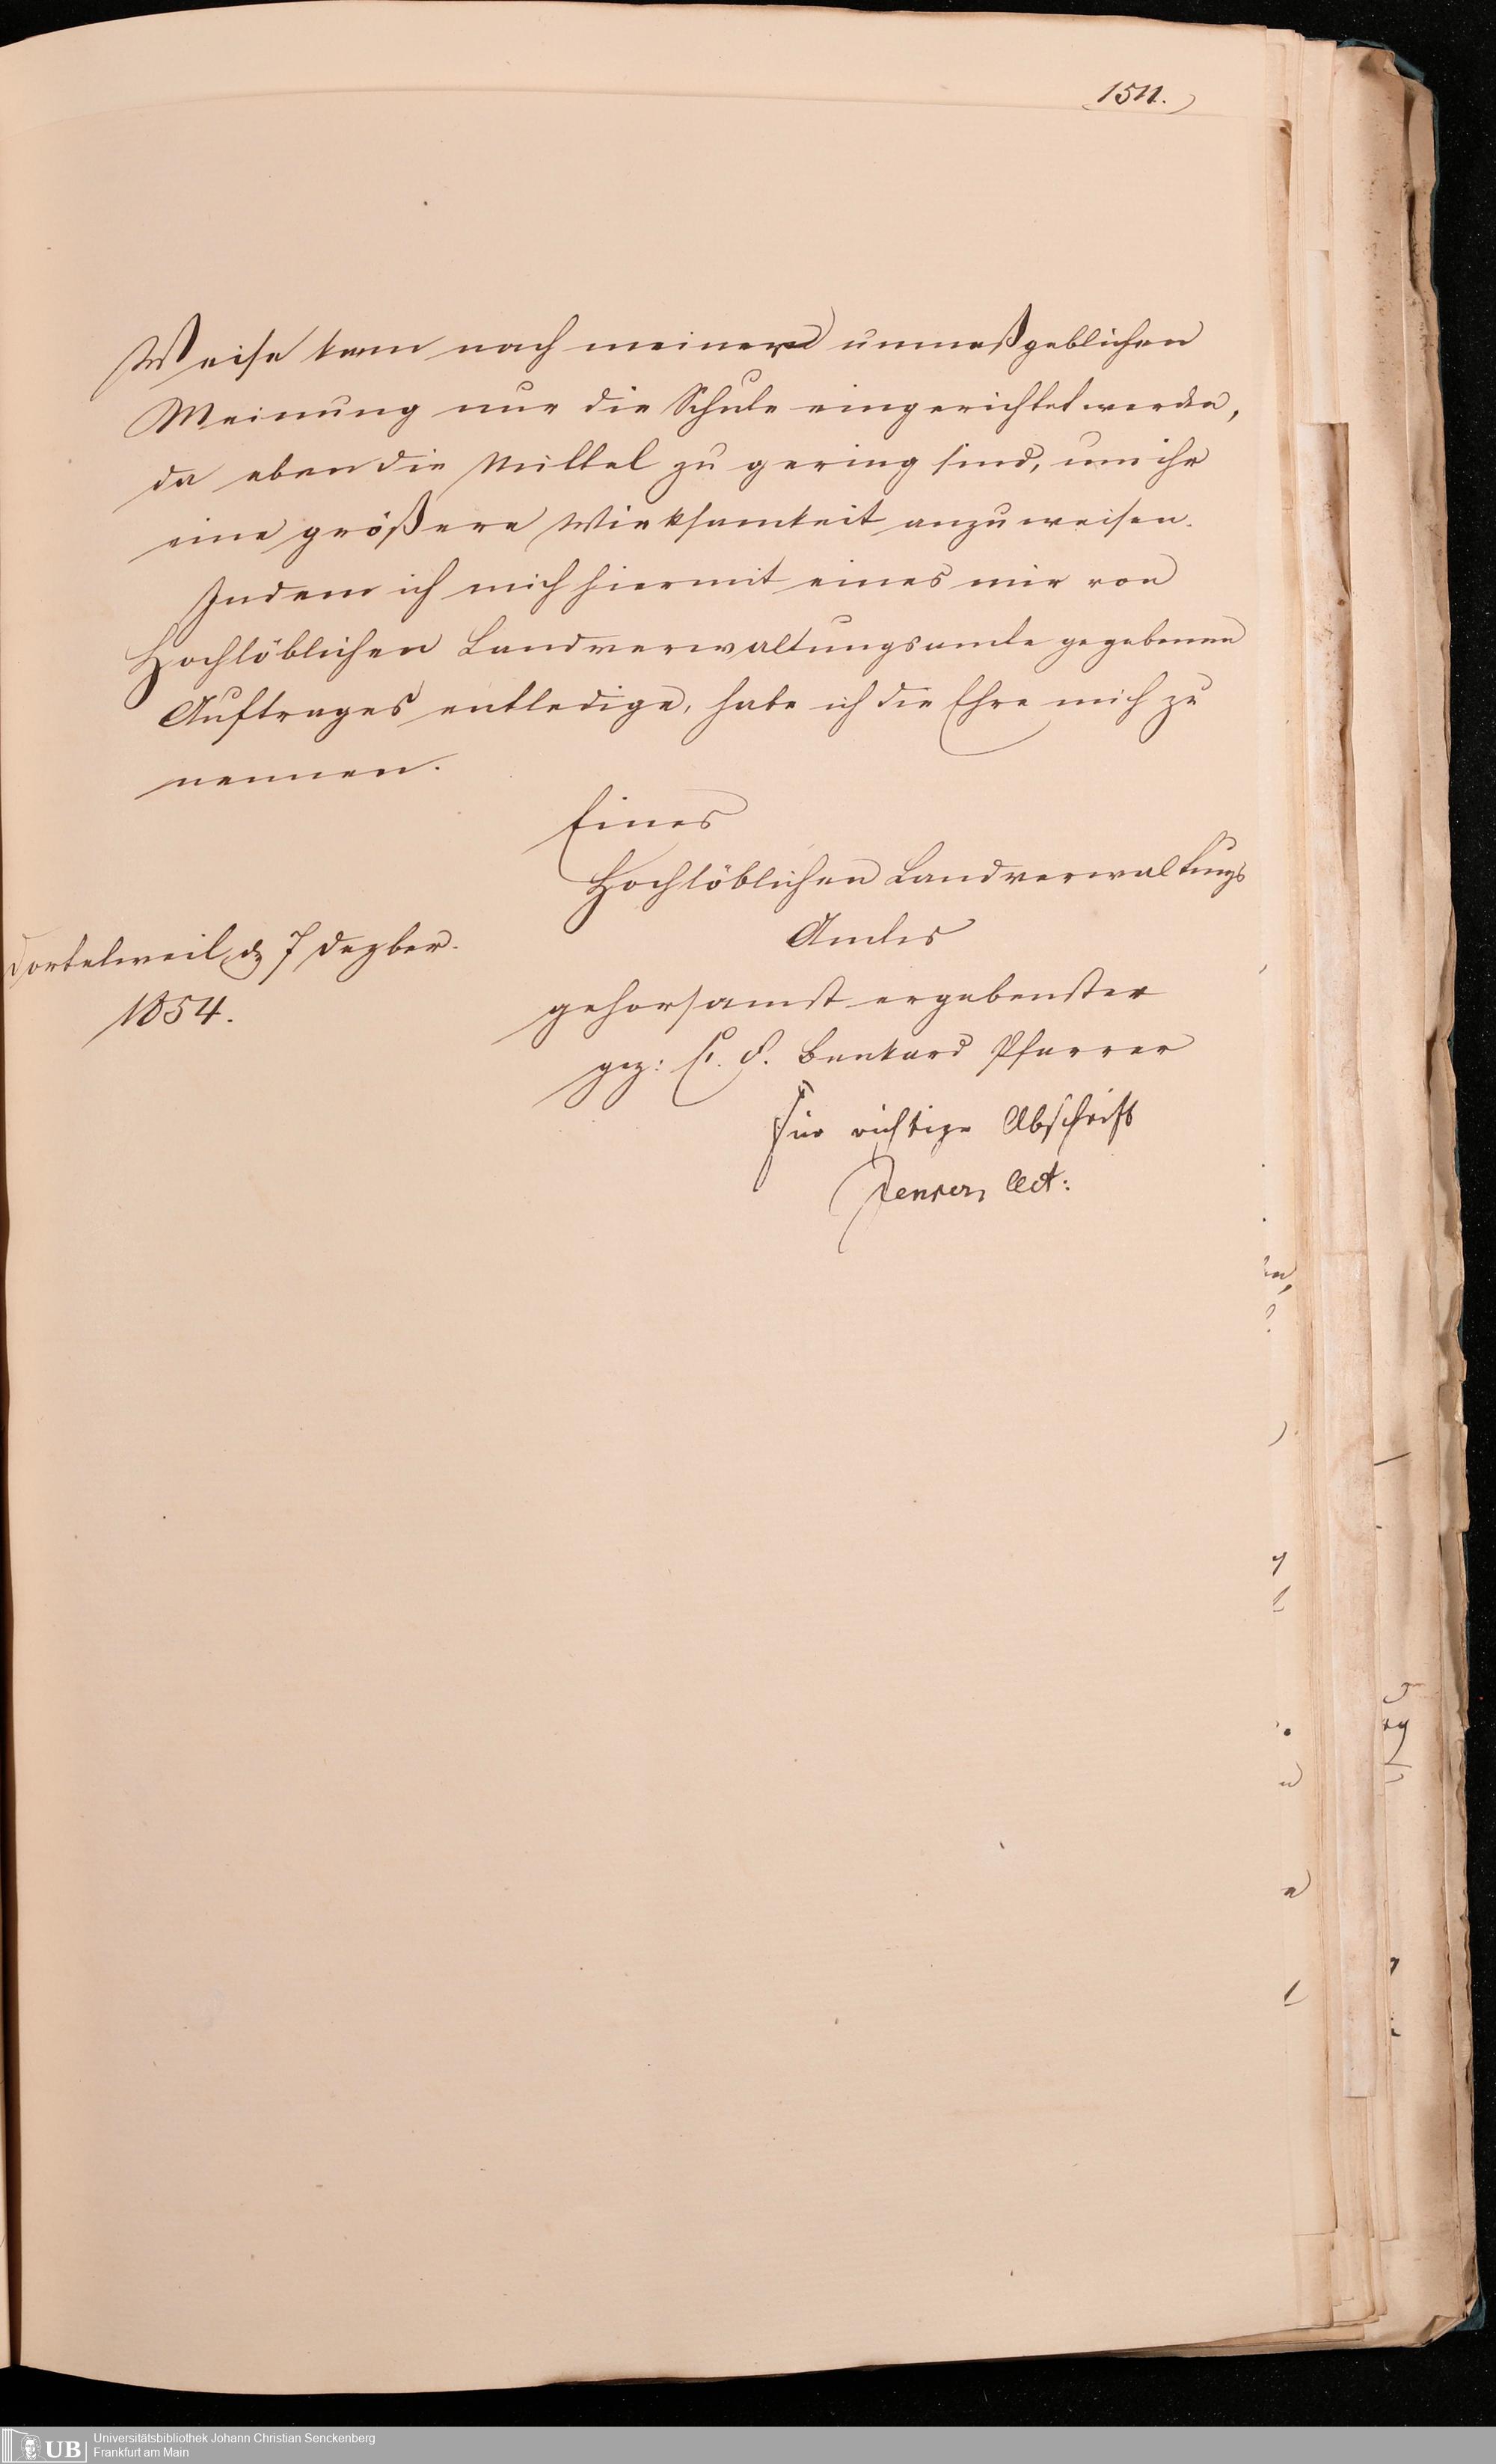 1511.
Weise kann nach meiner unmaßgeblichen
Meinung nur die Schule eingerichtet werden,
da eben die Mittel zu gering sind, um ihr
eine größere Wirksamkeit anzuweisen.
Indem ich mich hiermit eines mir von
Hochlöblichen Landverwaltungsamte gegebenen
Auftrages entledige, habe ich die Ehre mich zu
nennen.
Eines
Hochlöblichen Landverwaltungs
Amtes
Dortelweil d 7 Dezber.
1854.
gehorsamst ergebenster
gez: C. F. Benkard Pfarrer
Für richtige Abschrift
Act:
Universitätsbibliothek Johann Christian Senckenberg
Frankfurt am Main
UB